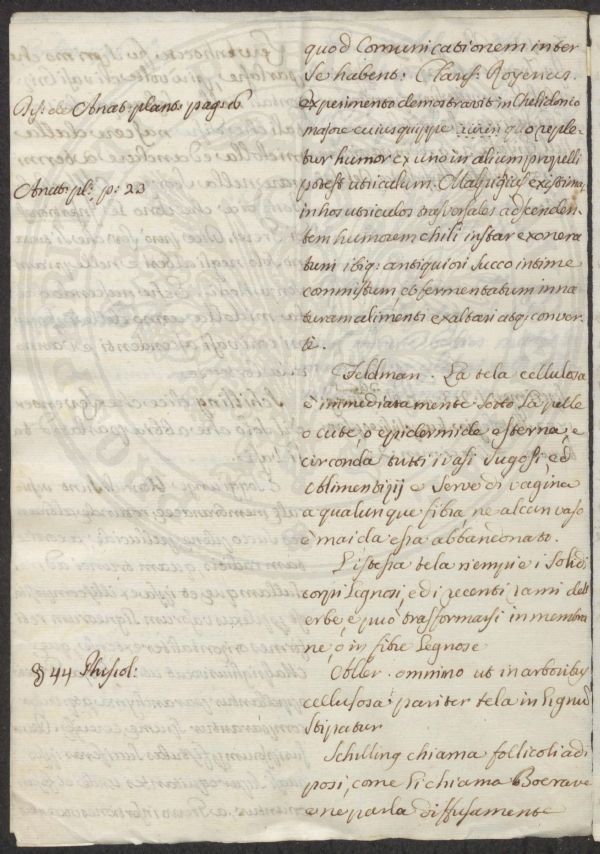 quod Comunicationem inter
se habent: Clariss: Royenus
Diss: de Anat: plant: pag: 6
experimento demostravit in Chelidonio
majore cuiusquippe quo reple-
tur humor ex uno in alium propelli
Anat: pl: p: 23
potest utriculum. Malpigius existima,
in hos utriculos trasversales adscenden-
tem humorem chili instar exonera
tum ibiq: antiquiori succo intime
commistum, et fermentatum in na
turam alimenti exaltari atq; conver-
ti.
Feldman. La tela cellulosa
è immediatamente sotto la pelle
o cute, o epidermide esterna, e
circonda tutti i vasi sugosi, ed
e serve di vagina
a qualunque fibra ne alcun vaso
è mai da essa abbandonato.
L'istessa tela riempie i solidi
corpi legnosi, ed i recenti rami dell
erbe e può trasformarsi in membra
ne, o in fibre legnose
§ 44 Phisiol:
omnino ut in arboribus
cellulosa pariter tela in lignum
stipatur
Schilling chiama follicoli adi
posi, come li chiama Boerave
e ne parla diffusamente